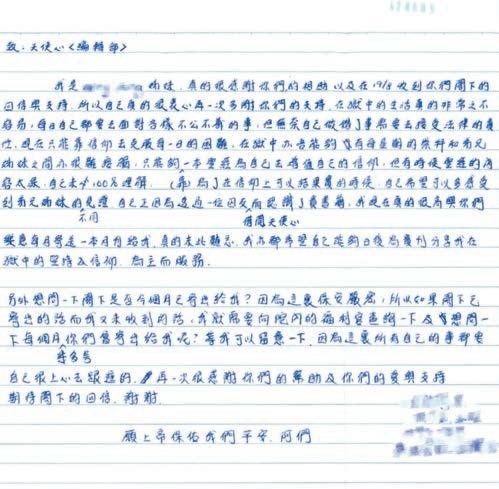 致：天使心《編輯部》
我是 姊妹，真的很感謝你們的相助以及在19/8收到你們閣下的
回信與支持。所以自己真的很衷心再一次多謝你們的支持。在獄中的生活真的非常之不
容易，每日自己都要去面對各樣不公不義的事，但無奈自己做錯了事需要去接受法律的責
任。現在只能靠信仰去克服每一日的困難，在獄中亦否能夠 有每星期的崇拜和弟兄
姊妹之間亦很難 ，只能夠一本聖經為自己去增值自己的信仰，但有時候聖經的內
容太深，自己未必100%理解。(靠)為了在信仰上可以結果實的時候，自己希望可以多感受
到弟兄姊妹的見證，自己正因為這 一位囚友而認識了貴書籍，我現在真的很高興你們
不同 借閱天使心
願意每月寄送一本月刊給我，真的未比難忘。我亦都希望自己能夠日後為貴刊分享我在
獄中的堅持及信仰，為主而服務。
另外想問一下閣下是否今個月已寄出給我？因為這裏保安嚴密，所以如果閣下已
寄出的話而我又未收到的話，我就需要向院內的福利官查詢一下及 想問一
下每個月你們會寄出給我呢？等我可以留意一下，因為這裏所有自己的事都要
等多多
自己很上心去跟進的。再一次很感謝你們的幫助及你們的愛與支持
期待閣下的回信。謝謝
願上帝保佑我們平安，阿們